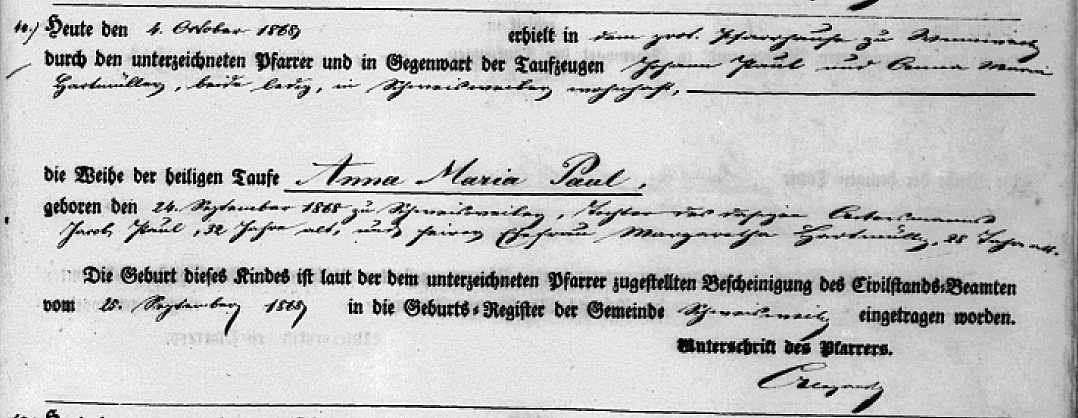 Heute den 4. October 1868 erhielt in dem prot. Pfarrhause zu
durch den unterzeichneten Pfarrer und in Gegenwart der Taufzeugen Johann Paul und Anna Maria
Hartmüller, beide ledig, in Schweisweiler wohnhaft,
die Weihe der heiligen Taufe Anna Maria Paul,
geboren den 24. September 1868 zu Schweisweiler, Tochter des dasigen Ackersmanns
Jacob Paul, 32 Jahre alt, und seiner Ehefrau Margaretha Hartmüller, 28 Jahre alt.
Die Geburt dieses Kindes ist laut der dem unterzeichneten Pfarrer zugestellten Bescheinigung des Civilstands-Beamten
vom 28. September 1868 in die Geburts-Register der Gemeinde Schweisweiler eingetragen worden.
Unterschrift des Pfarrers.